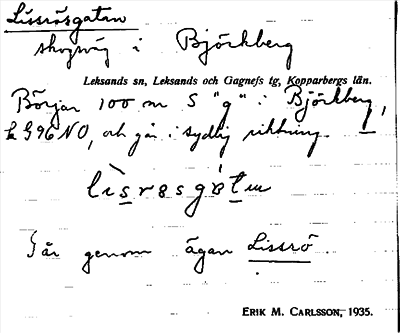 Lissrösgatan
skogsväg i Björkberg
Leksands sn, Leksands och Gagnefs tg, Kopparbergs län.
Börjar 100 m S "g" i Björkberg,
k G96 NO, och går i sydlig riktning.
Går genom ägan Lissrö.
ERIK M. CARLSSON, 1935.